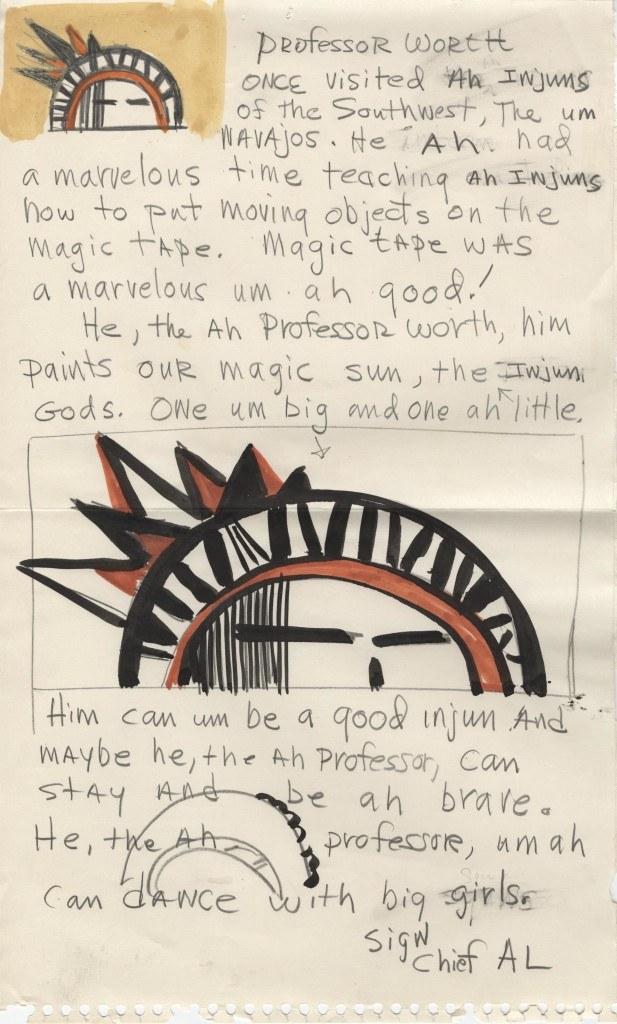 PROFESSOR WORTH
ONCE visited Ah Injuns
of the Southwest, The um
NAVAJOS. He Ah. had
a marvelous time teaching Ah Injuns
how to put moving objects on the
magic tApe. Magic tApe WAS
a marvelous um. ah good!
He, the Ah Professor Worth, him
paints our magic sun, the Injun
Gods. One um big and one ah little.
Him can um be a good injun And
maybe he, the Ah Professor, can
stay And be ah brave.
He, the Ah professor, um ah
can dance with big girls.
Sign
Chief AL